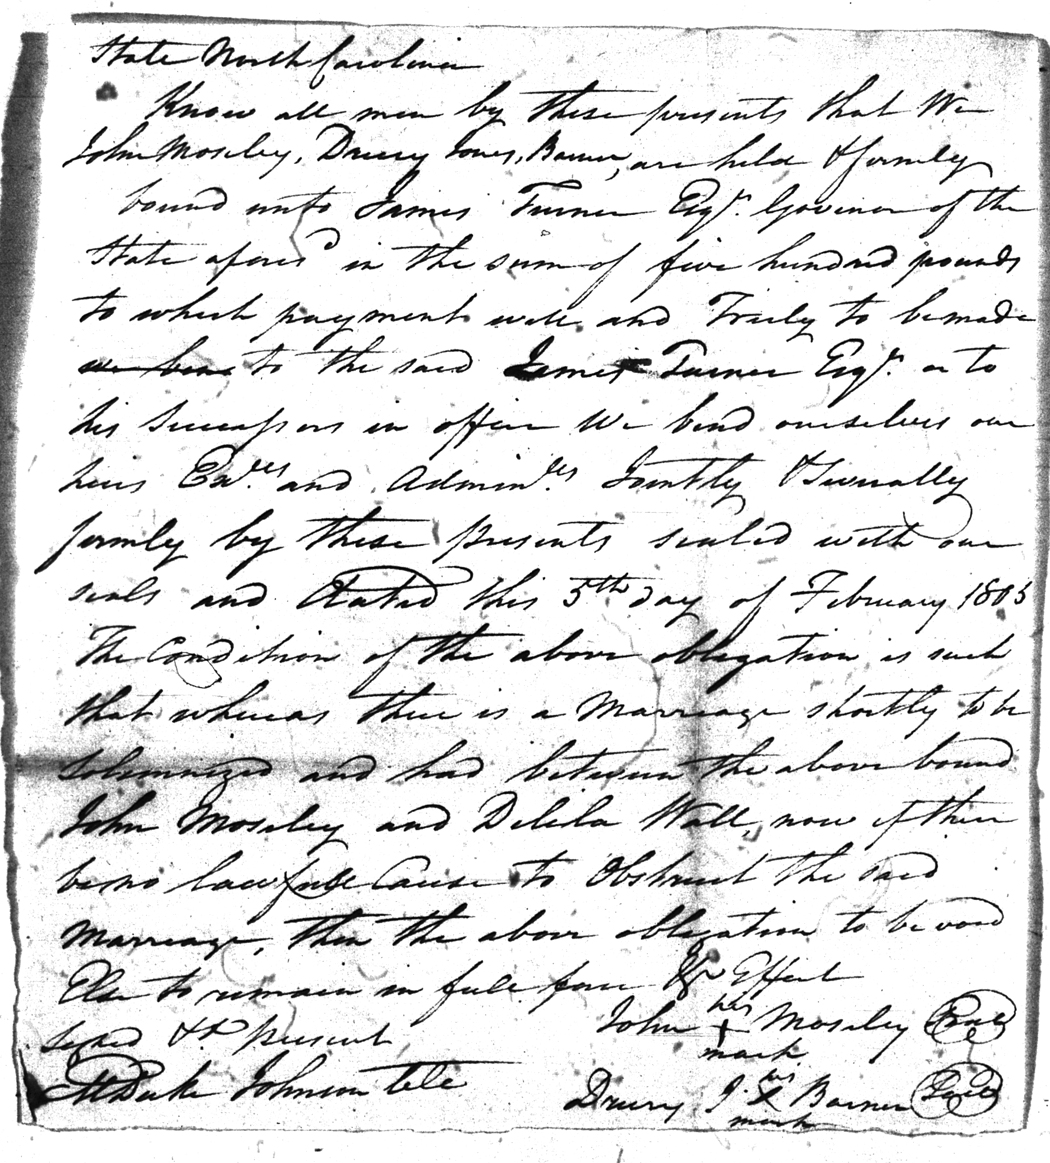 State North Carolina
Know all men by these presents that We
John Moseley, Drury Jones, Barner, are held & firmly
bound unto James Turner Esqr. Governor of the
State afores'd in the sum of five hundred pounds
to which payment well and Truly to be made
we bind to the said James Turner Esqr. or to
his Successors in office We bind ourselves our
heirs Exres and Adminres Jointly & Severally
firmly by these presents sealed with our
seals and dated this 5th day of February 1805
The Condition of the above obligation is such
that whereas there is a Marriage shortly to be
Solemnized and had between the above bound
John Moseley and Delila Wall, now if there
be no lawfull Cause to Obstruct the said
Marriage, then the above obligation to be void
Else to remain in full force & Effect
Signed &c. present
John his + mark Moseley Seal
Duke Johnson
Drury J. his X mark Barner Seal